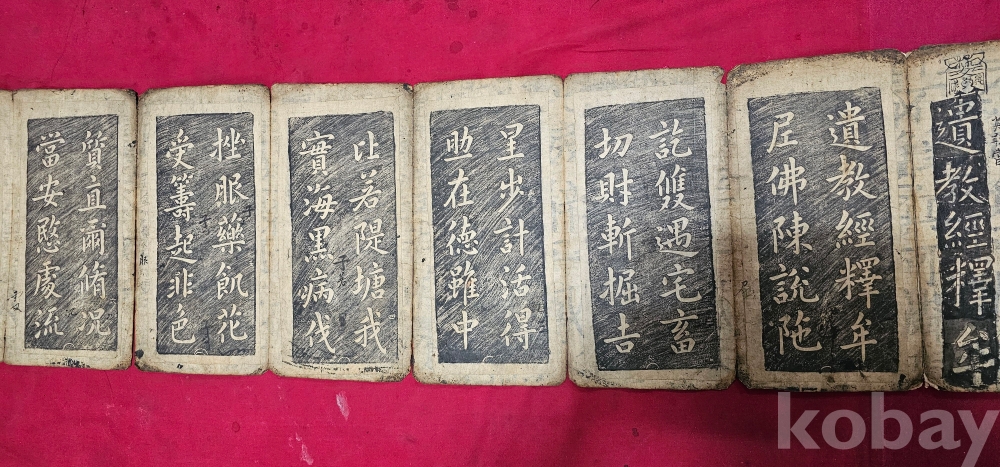 遺教經釋牟
遺教經釋牟
尼佛陳說陁
訖雙遇宅畜
切財斬掘吉
星步計活得
助在德雖中
比若隄塘我
實海黒病伐
挫眼藥飢花
受籌起非色
質直爾脩況
當安愍處流
kobay